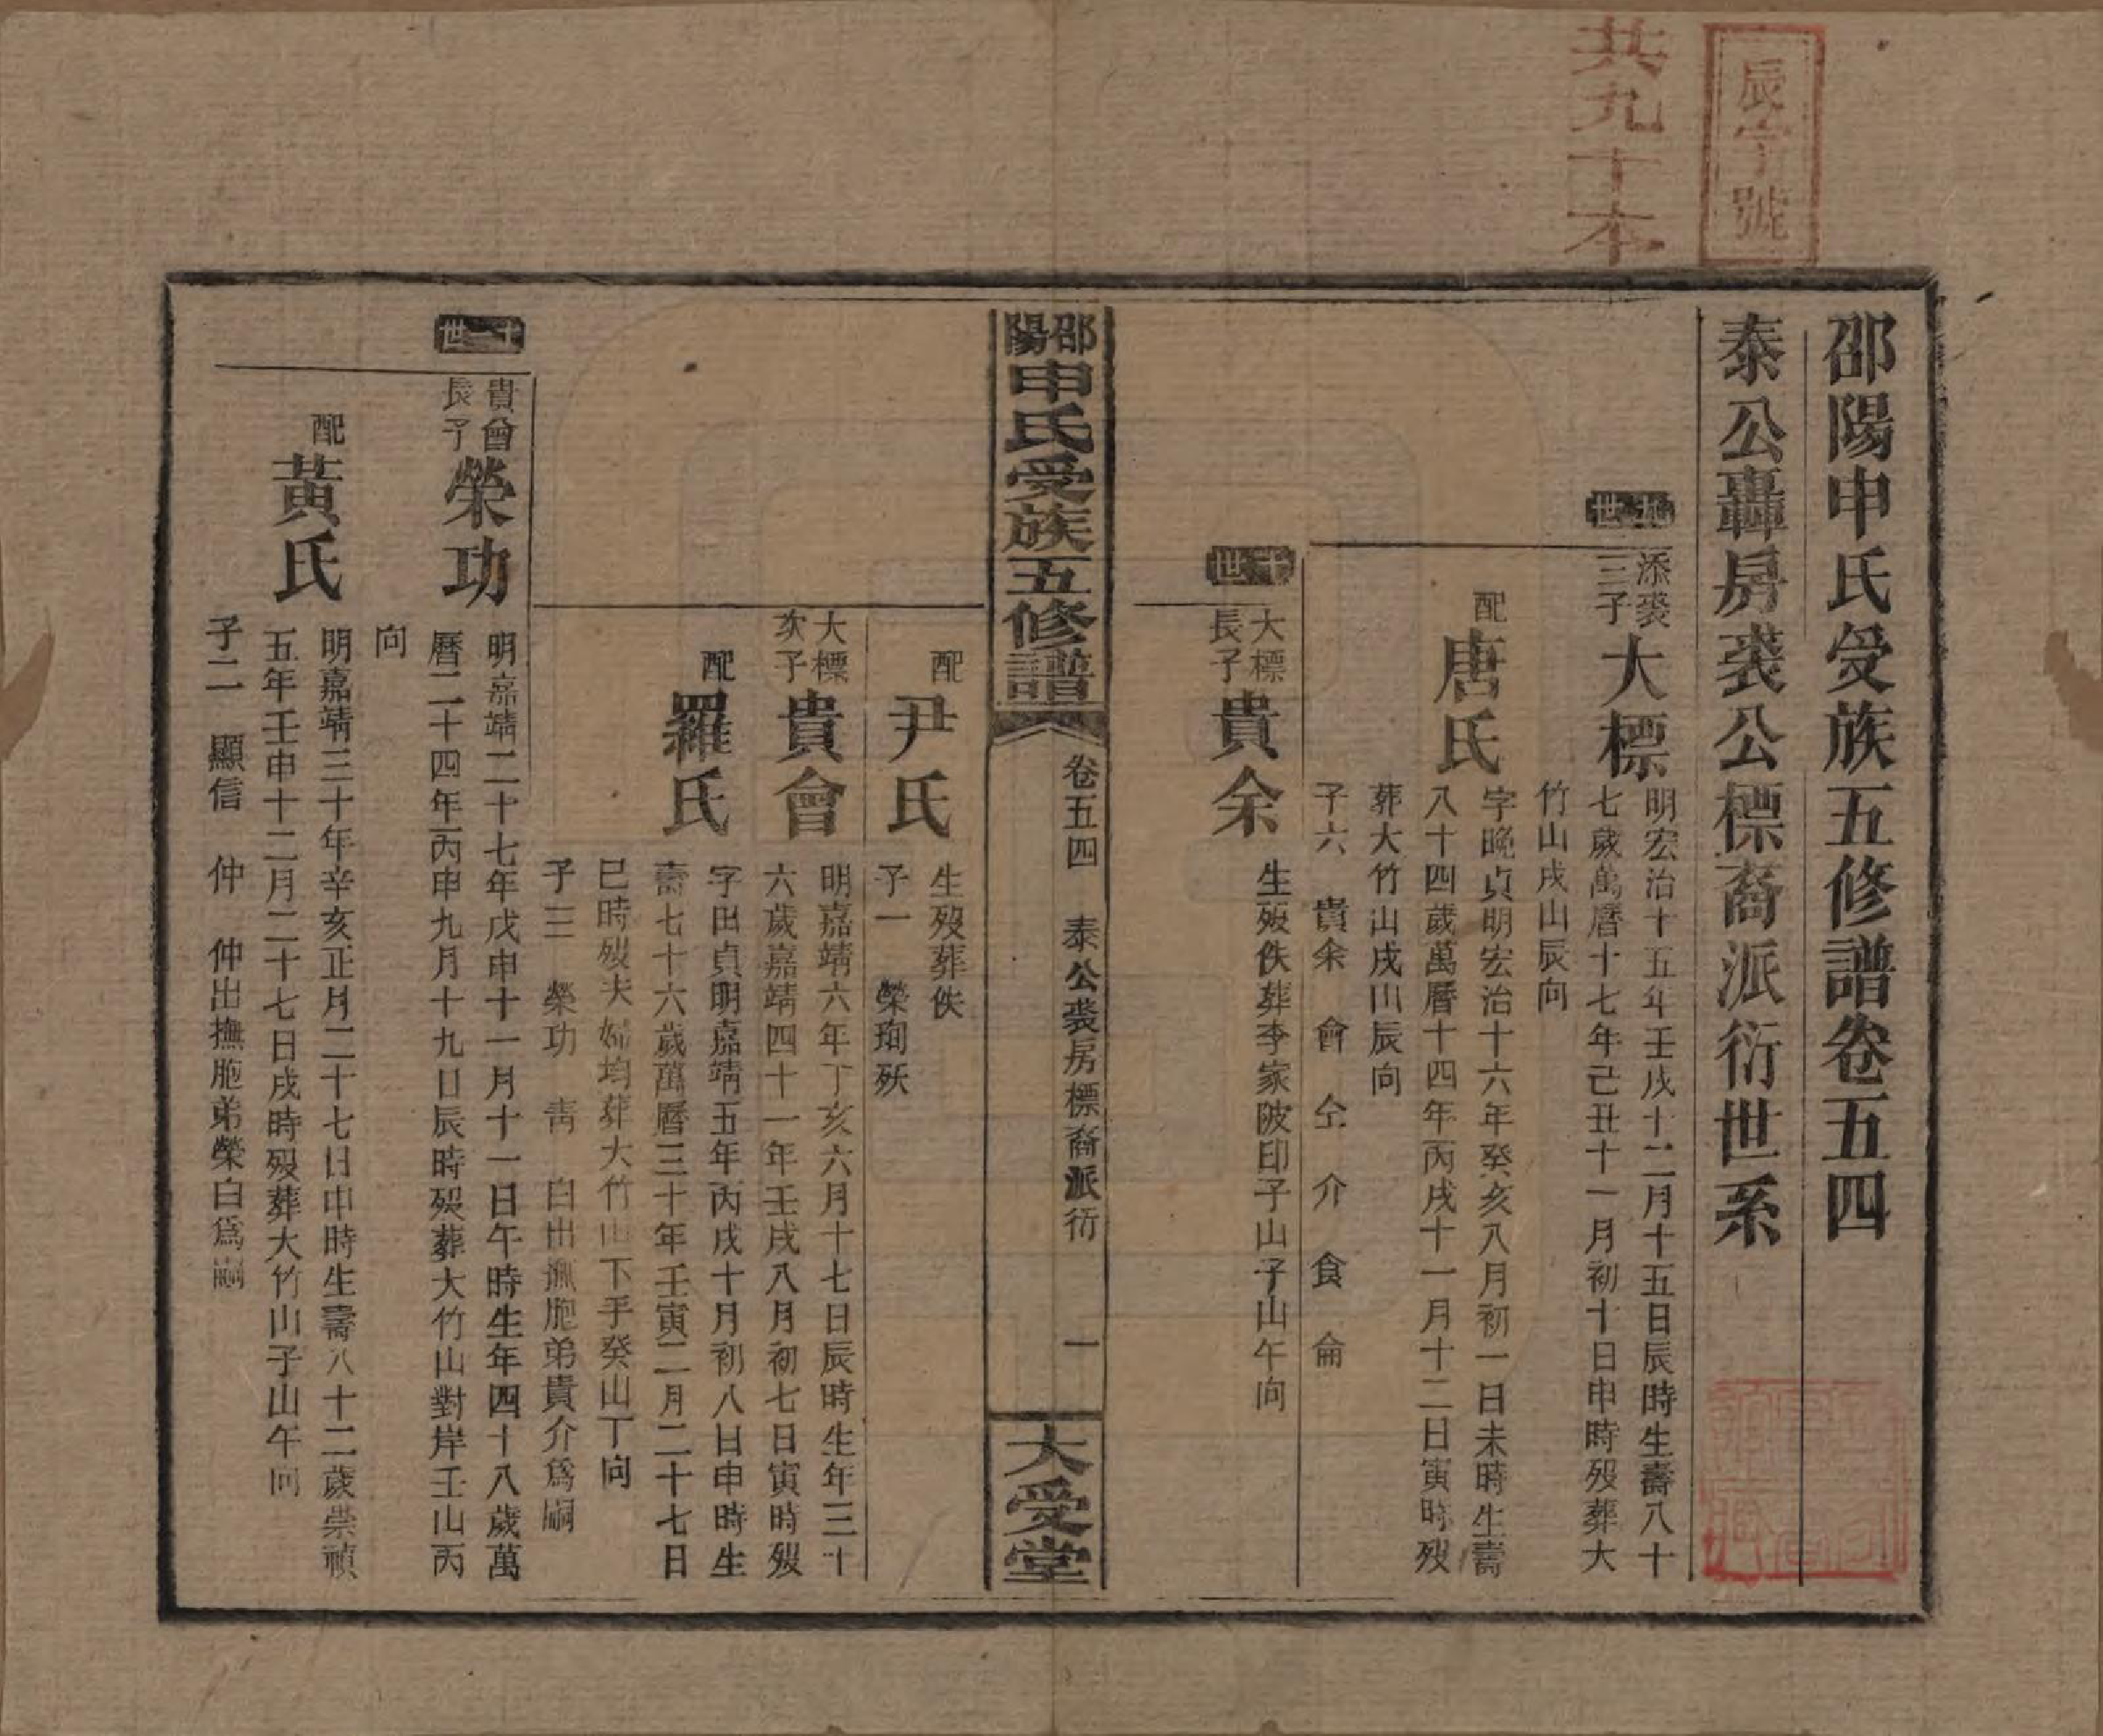 辰字號
共九十本
邵陽申氏受族五修譜卷五四
泰公轟房裘公標裔派衍世系
九世
添裘三子
大標
明宏治十五年壬戌十二月十五日辰時生壽八十
七歲萬曆十七年己丑十一月初十日申時歿葬大
竹山戌山辰向
配
唐氏
字晚貞明宏治十六年癸亥八月初一日未時生壽
八十四歲萬曆十四年丙戌十一月十二日寅時歿
葬大竹山戌山辰向
子六 貴余 會 仝 介 食 侖
十世
大標長子
貴余
生歿佚葬李家陂印子山子山午向
邵陽申氏受族五修譜
卷五四 泰公裘房標裔派衍 一
大受堂
配
尹氏
生歿葬佚
子一 榮珣殀
大標次子
貴會
明嘉靖六年丁亥六月十七日辰時生年三十
六歲嘉靖四十一年壬戌八月初七日寅時歿
配
羅氏
字田貞明嘉靖五年丙戌十月初八日申時生
壽七十六歲萬曆三十年壬寅二月二十七日
巳時歿夫婦均葬大竹山下手癸山丁向
子三 榮功 靑 白出撫胞弟貴介爲嗣
十一世
貴會長子
榮功
明嘉靖二十七年戊申十一月十一日午時生年四十八歲萬
曆二十四年丙申九月十九日辰時歿葬大竹山對岸壬山丙
向
配
黃氏
明嘉靖三十年辛亥正月二十七日申時生壽八十二歲崇禎
五年壬申十二月二十七日戌時歿葬大竹山子山午向
子二 顯信 仲 仲出撫胞弟榮白爲嗣